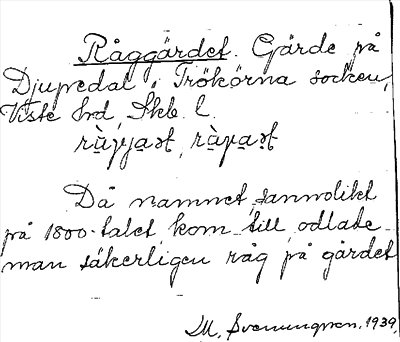 Råggärdet. Gärde på
Djupedal i Trökörna socken,
Viste hd, Skb. l.
Då namnet sannolikt
på 1800-talet kom till odlade
man säkerligen råg på gärdet
M. Svenungsson. 1939.